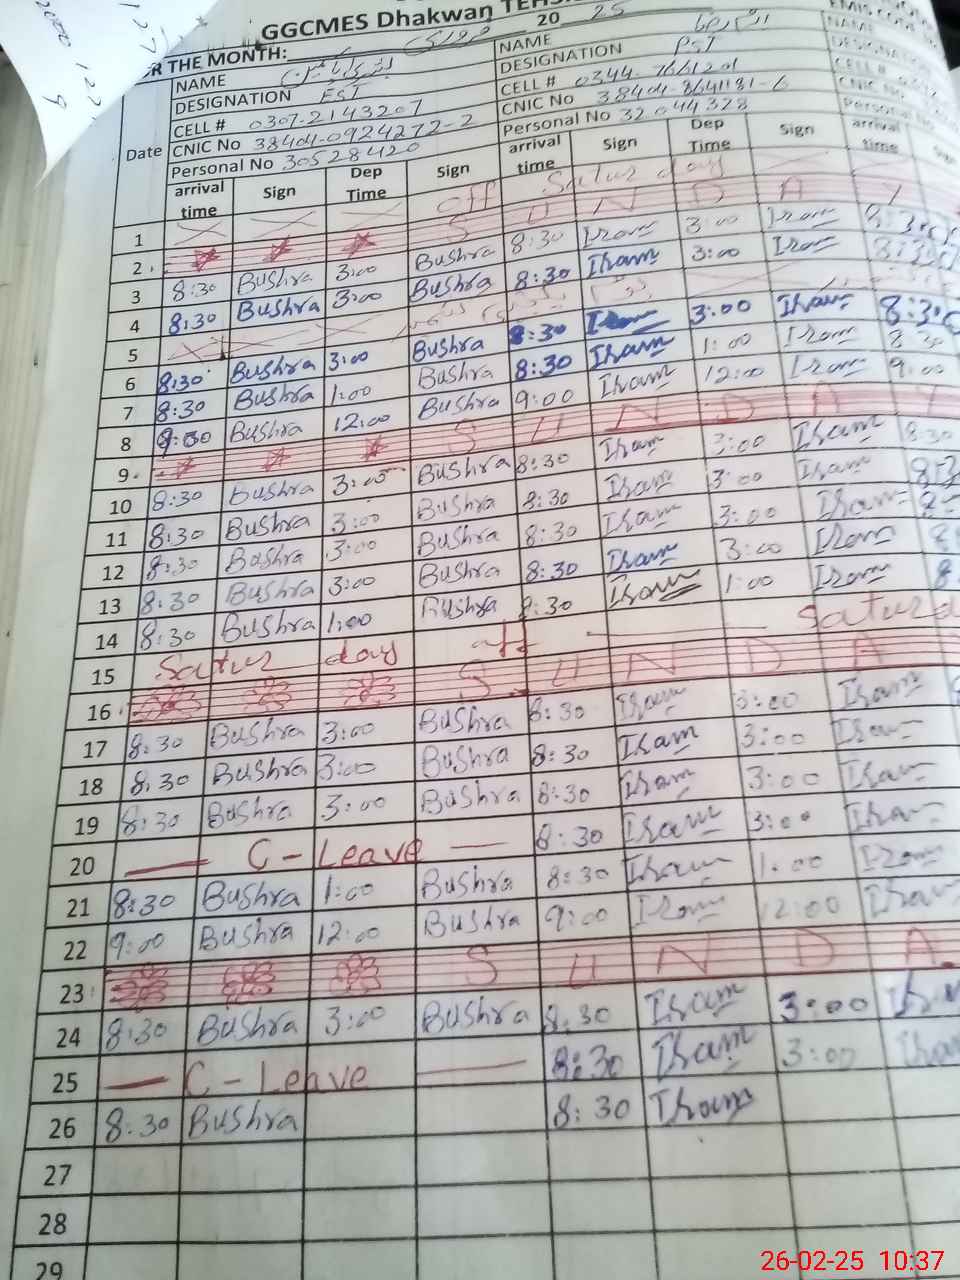 GGCMES Dhakwan TEHS
R THE MONTH: فروری 2025
NAME
DESIGNATION EST
CELL # 0307-2143207
CNIC No 38404-0924272-2
Personal No 30528420
NAME
DESIGNATION PST
CELL #
CNIC No 38404-8641181-6
Personal No 32044328
NAME
Date arrival time Sign Dep Time Sign arrival time Sign Dep Time Sign arrival time
1 off Satur day
2 S U N D A Y
3 8:30 Bushra 3:00 Bushra 8:30 Iram 3:00 Iram 8:30
4 8:30 Bushra 3:00 Bushra 8:30 Iram 3:00 Iram 8:30
5
6 8:30 Bushra 3:00 Bushra 8:30 Iram 3:00 Iram 8:30
7 8:30 Bushra 1:00 Bushra 8:30 Iram 1:00 Iram 8:30
8 9:00 Bushra 12:00 Bushra 9:00 Iram 12:00 Iram 9:00
9 S U N D A Y
10 8:30 Bushra 3:00 Bushra 8:30 Iram 3:00 Iram 8:30
11 8:30 Bushra 3:00 Bushra 8:30 Iram 3:00 Iram 8:3
12 8:30 Bushra 3:00 Bushra 8:30 Iram 3:00 Iram 8:
13 8:30 Bushra 3:00 Bushra 8:30 Iram 3:00 Iram 8
14 8:30 Bushra 1:00 Bushra 8:30 Iram 1:00 Iram 8
15 Satur day off Saturd
16 S U N D A
17 8:30 Bushra 3:00 Bushra 8:30 Iram 3:00 Iram
18 8:30 Bushra 3:00 Bushra 8:30 Iram 3:00 Iram
19 8:30 Bushra 3:00 Bushra 8:30 Iram 3:00 Iram
20 C-Leave 8:30 Iram 3:00 Iram
21 8:30 Bushra 1:00 Bushra 8:30 Iram 1:00 Iram
22 9:00 Bushra 12:00 Bushra 9:00 Iram 12:00 Iram
23 S U N D A
24 8:30 Bushra 3:00 Bushra 8:30 Iram 3:00 Iram
25 C-Leave 8:30 Iram 3:00 Iram
26 8:30 Bushra 8:30 Iram
27
28
29
26-02-25 10:37